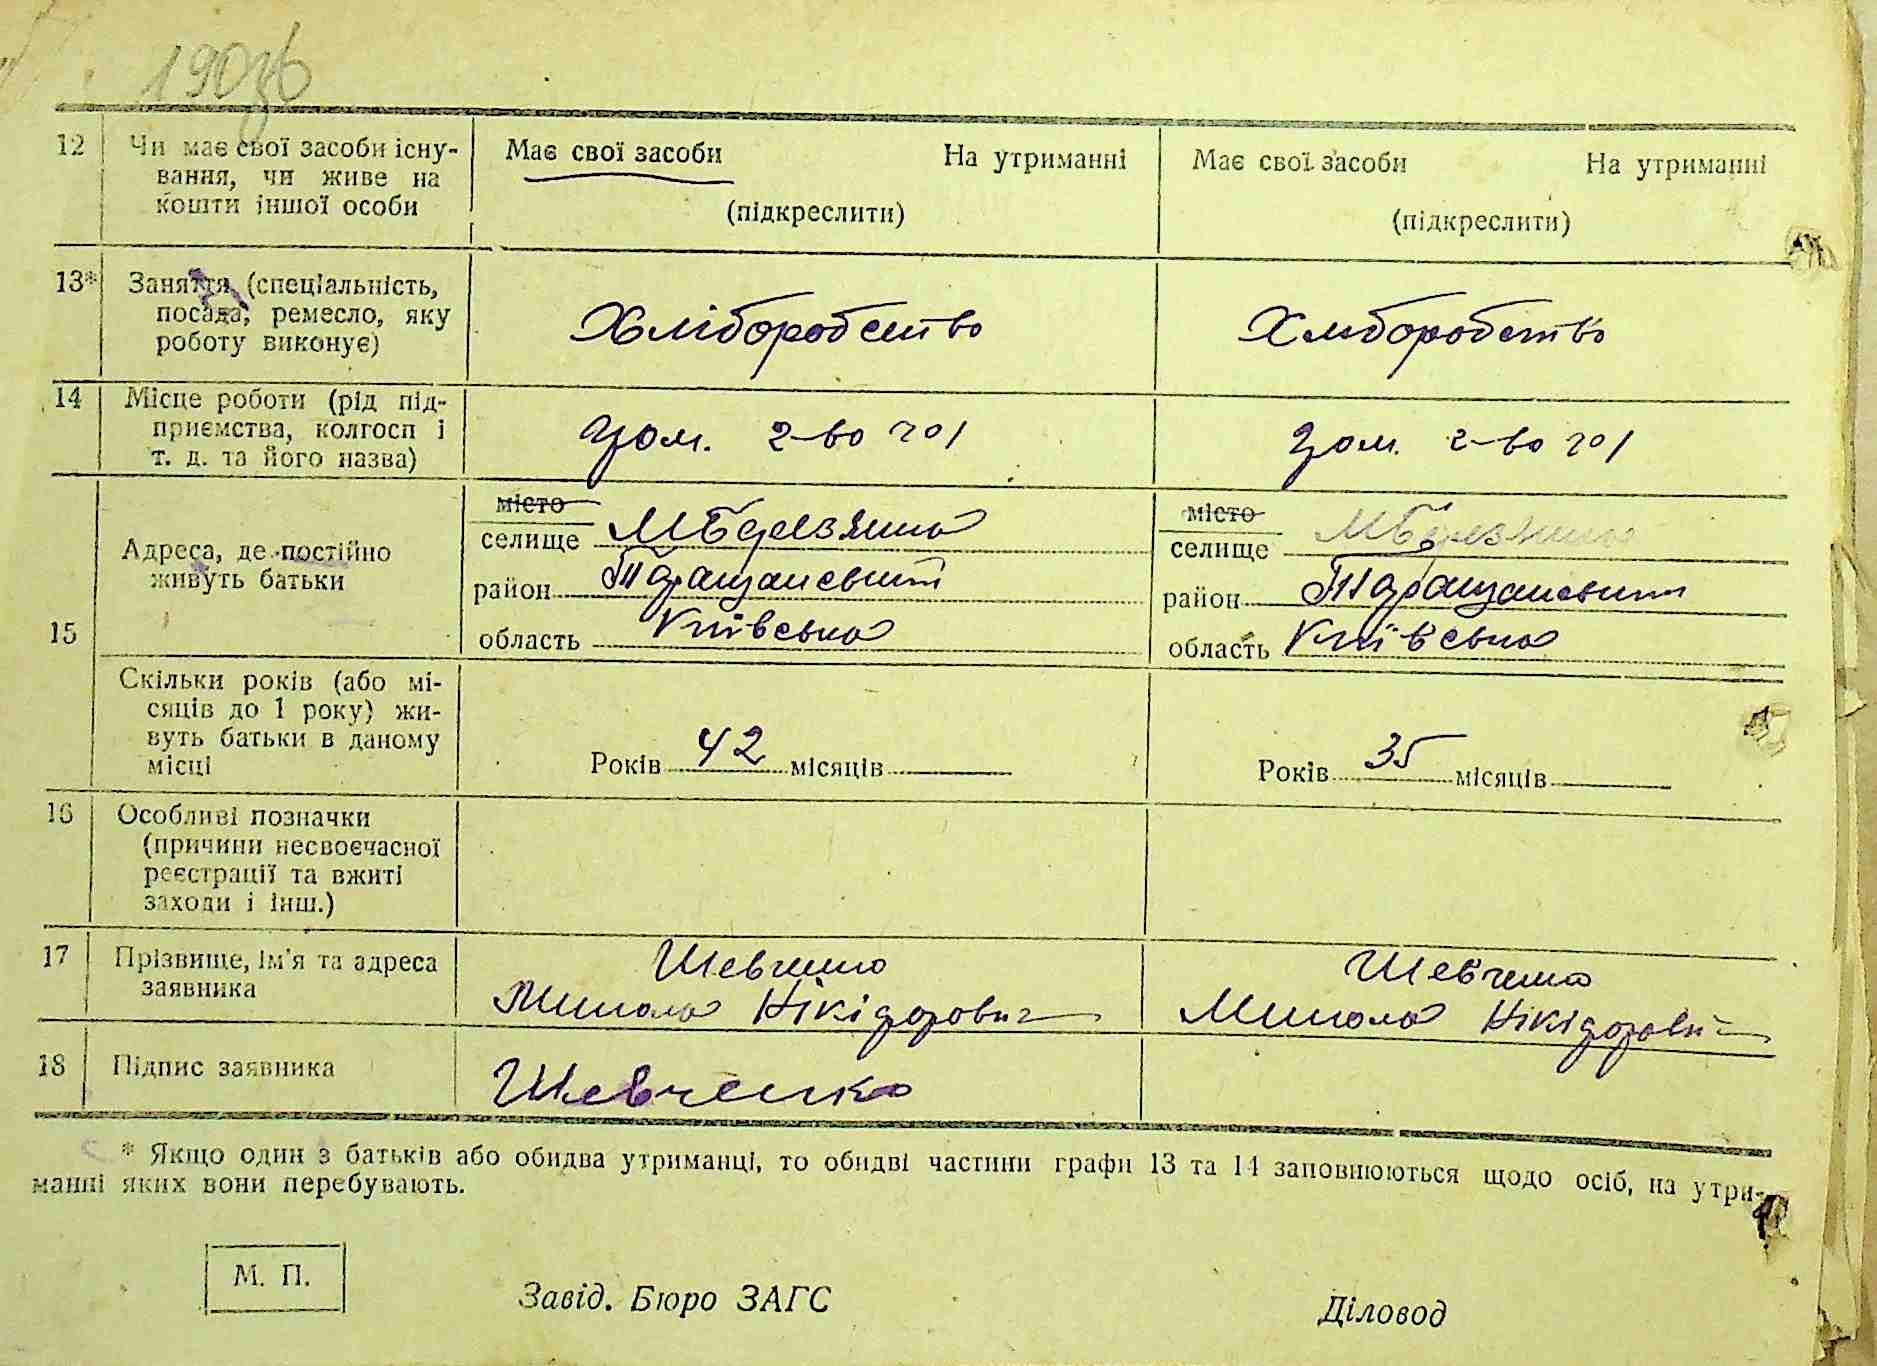 12 Чи має свої засоби існу-
вання, чи живе на
кошти іншої особи
Має свої засоби На утриманні
(підкреслити)
Має свої засоби На утриманні
(підкреслити)
13* Заняття (спеціальність,
посада, ремесло, яку
роботу виконує)
Хліборобство
Хліборобство
14 Місце роботи (рід під-
приємства, колгосп і
т. д. та його назва)
2-во 201
2-во 201
15
Адреса, де постійно
живуть батьки
місто
селище МБерезянка
район Таращанський
область Київська
місто
селище МБерезянка
район Таращанський
область Київська
Скільки років (або мі-
сяців до 1 року) жи-
вуть батьки в даному
місці
Років 42 місяців
Років 35 місяців
16 Особливі позначки
(причини несвоєчасної
реєстрації та вжиті
заходи і інш.)
17 Прізвище, ім'я та адреса
заявника
Шевченко
Микола Нікіфорович
Шевченко
Микола Нікіфорович
18 Підпис заявника
Шевченко
* Якщо один з батьків або обидва утриманці, то обидві частини графи 13 та 14 заповнюються щодо осіб, на утри-
манні яких вони перебувають.
М. П.
Завід. Бюро ЗАГС
Діловод